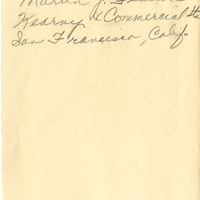 Martin J.
Kearny & Commercial Sts
San Francisco, Calif.